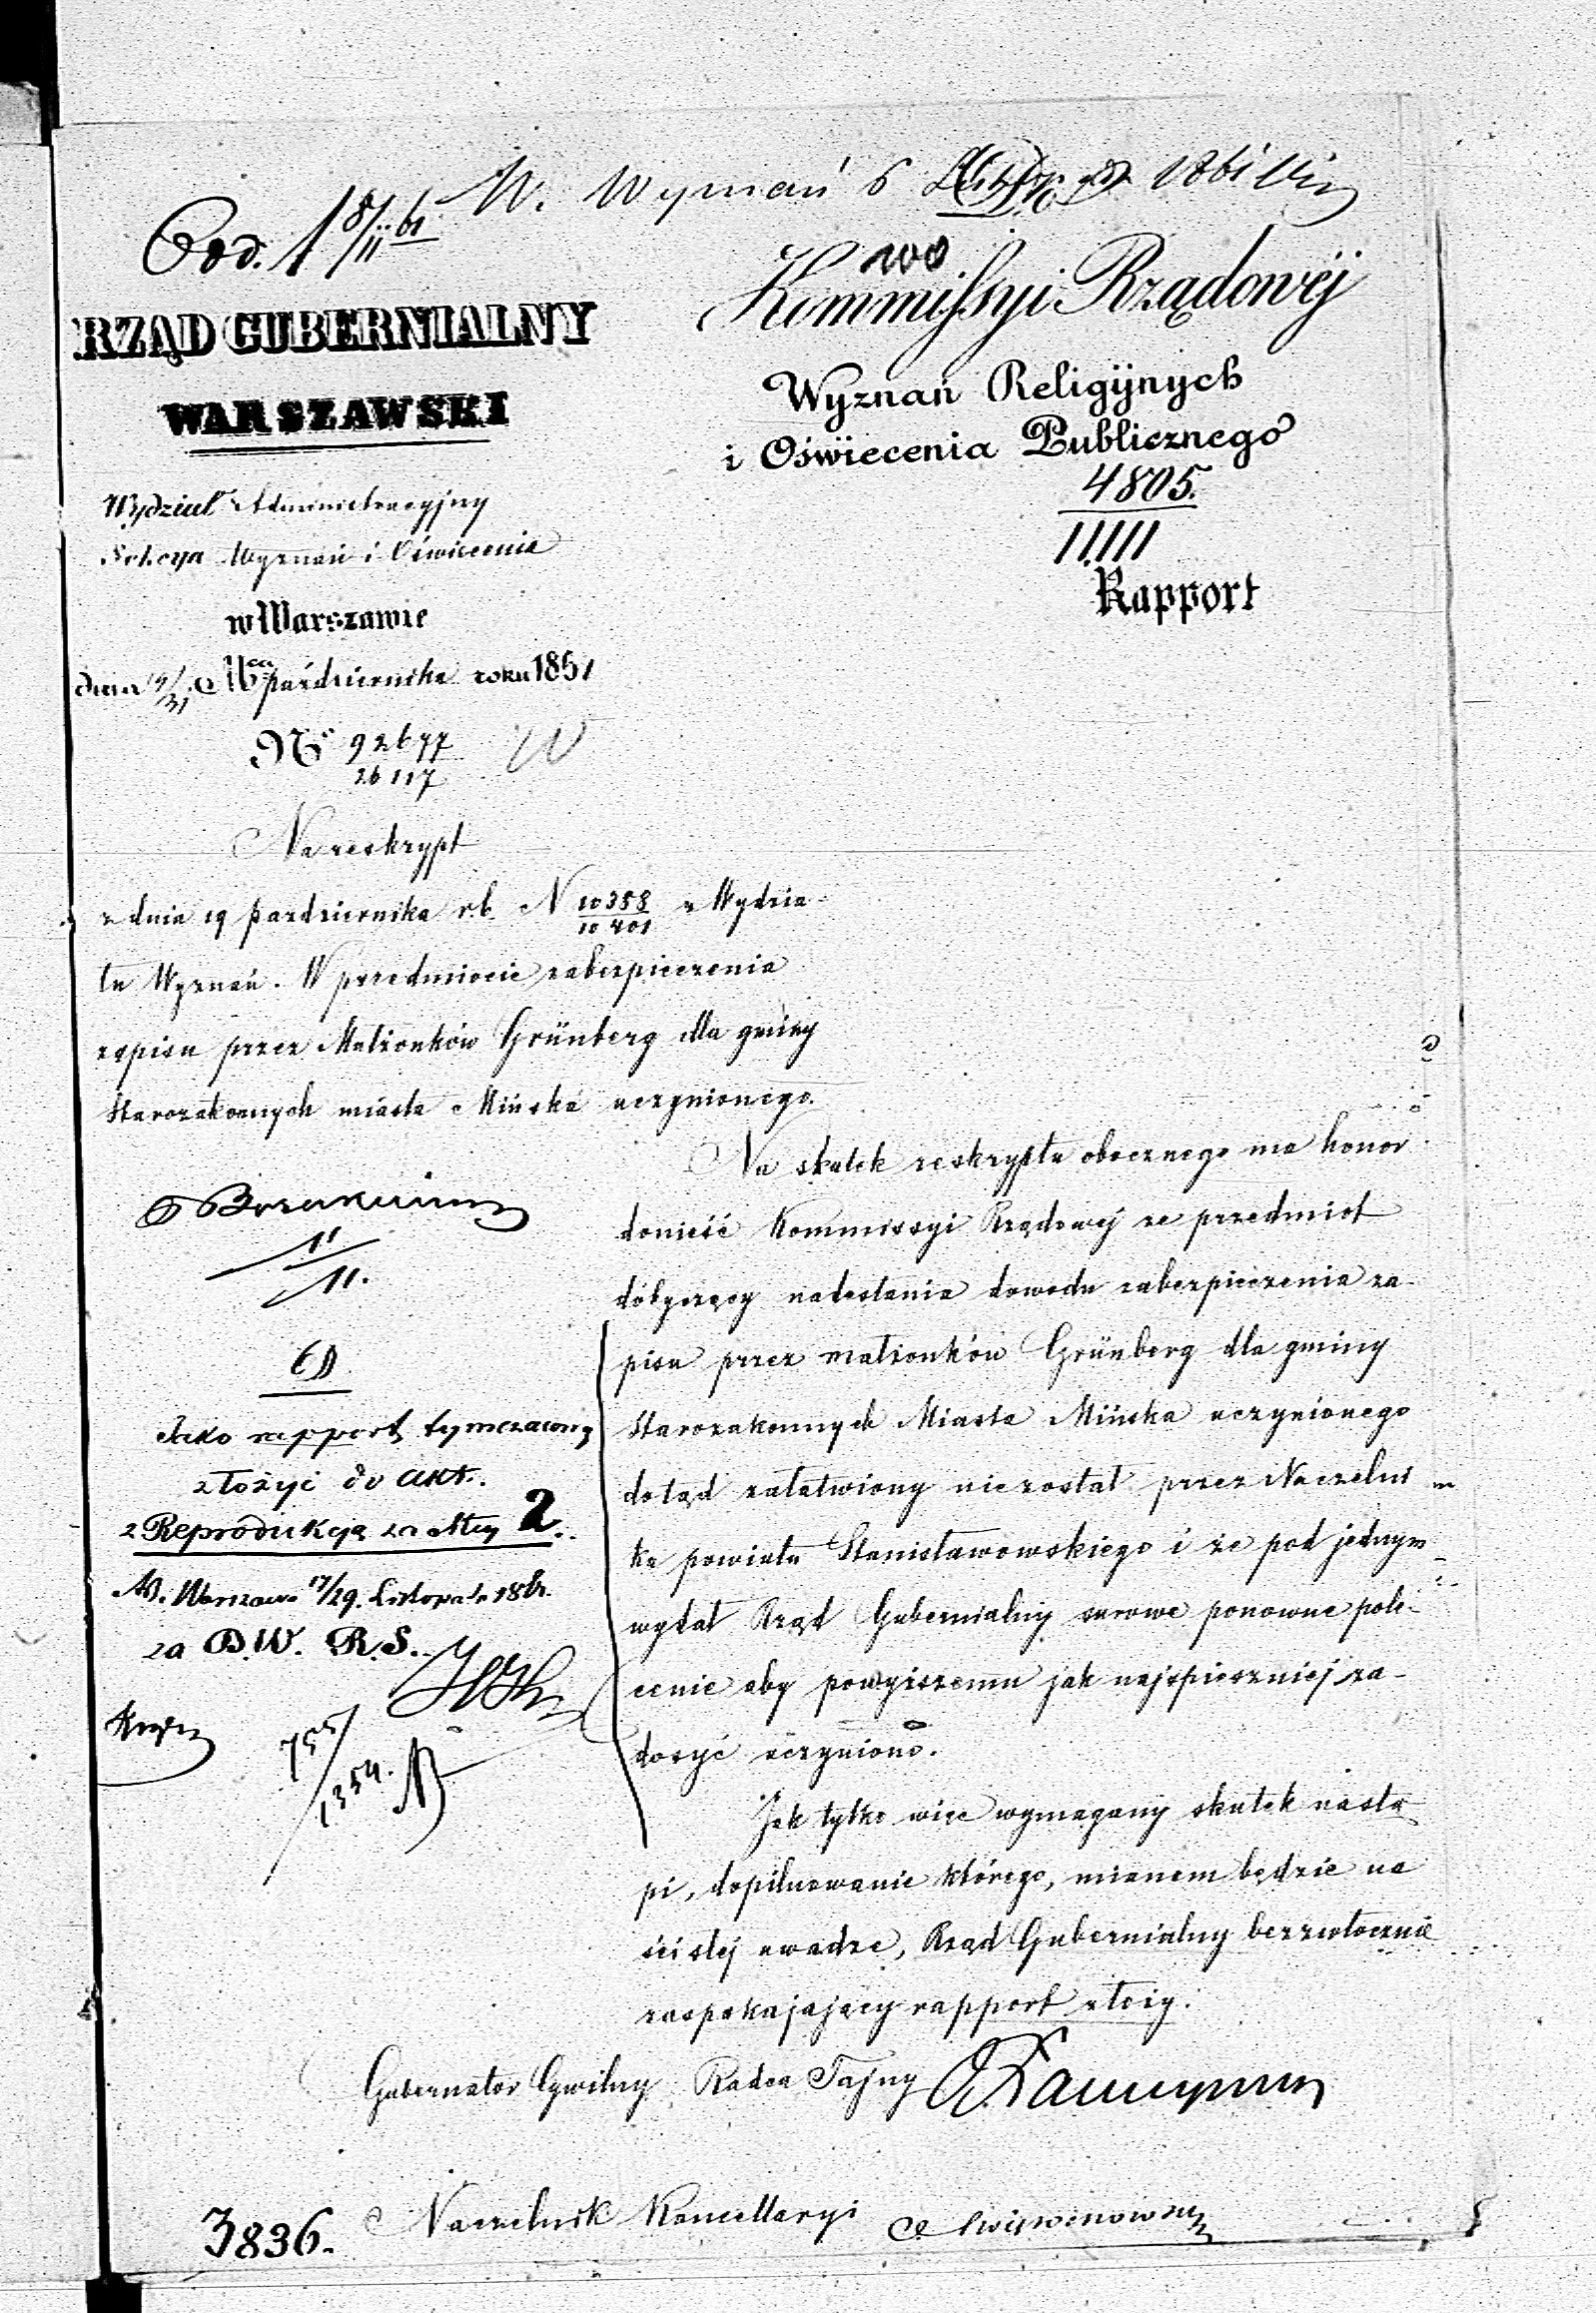 W. Wyznań 6 1861
Pod. 1 8/11 61
RZĄD GUBERNIALNY
WARSZAWSKI
Wydział Administracyjny
Sekcya Wyznań i Oświecenia
w Warszawie
dnia 19/31 Mca października roku 1861
No 92677
26117
Kommissyi Rządowéj
Wyznań Religijnych
i Oświecenia Publicznego
4805.
Rapport
Na reskrypt
z dnia 19 pazdziernika r.b. N 10358/10401 z Wydzia-
łu Wyznań. W przedmiocie zabezpieczenia
zapisu przez Małżonków Grünberg dla gminy
Starozakonnych miasta Mińska uczynionego.
Na skutek reskryptu obocznego ma honor
donieść Kommissyi Rządowej że przedmiot
dotyczący nadesłania dowodu zabezpieczenia za-
pisu przez małżonków Grünberg dla gminy
Starozakonnych Miasta Mińska uczynionego
dotąd załatwiony niezostał przez Naczelni
ka powiatu Stanisławowskiego i że pod jednym
wydał Rząd Gubernialny surowe ponowne pole-
cenie aby powyższemu jak najspieszniej za-
dosyć uczyniono.
Jak tylko więc wymagany skutek nastą
pi, dopilnowanie którego, mianem będzie na
ścisłej uwadze, Rząd Gubernialny bezzwłocznie
zaspakajający rapport złoży.
11/11.
Jako rapport tymczasowy
złożyć do akt.
z Reprodukcją za Mcy 2.
W. Warszawa 17/29. Listopada 1861.
za D.W. R.S.
755/1354.
Gubernator Cywilny, Radca Tajny
Naczelnik Kancellaryi
3836.